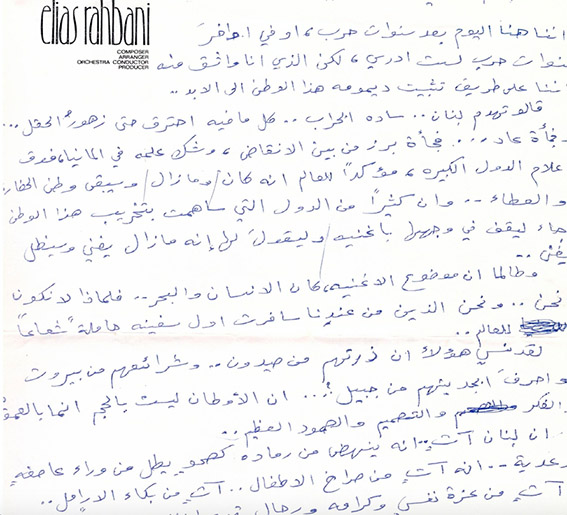 elias rahbani
COMPOSER
ARRANGER
ORCHESTRA CONDUCTOR
PRODUCER
اننا هنا اليوم بعد سنوات حرب، او في اواخر
سنوات حرب لست ادري، لكن الذي انا واثق منه
اننا على طريق تثبيت ديمومه هذا الوطن الى الابد..
قالو تهدم لبنان.. ساده الخراب.. كل مافيه احترق حتى زهور الحقل...
وفجأة عاد... فجأة برز من بين الانقاض، وشك علمه في المانيا، فوق
علام الدول الكبيره، مؤكداً للعالم انه كان وما زال وسيبقى وطن الحضارة
والعطاء.. وان كثيراً من الدول التي ساهمت بتخريب هذا الوطن
جاء ليقف في وجهها باغنيه وليقول لها إنه مازال يغني وسيظل
يغني..
وطالما ان موضوع الاغنيه كان الانسان والبحر.. فلماذا لا نكون
نحن.. ونحن الذين من عندنا سافرت اول سفينه حاملة شعاعاً
للعالم..
لقد نسي هؤلاء ان ذرتهم من صيدون.. وشرائعهم من بيروت
واحرف ابجديتهم من جبيل!... ان الأوطان ليست بالحجم انما بالعمق
والفكر والتصميم والصمود العظيم..
ان لبنان آتٍ.. انه ينهض من رماده كصحوٍ يطل من وراء عاصفةٍ
رعدية.. انه آتٍ من صراخ الاطفال.. آتٍ من بكاء الارامل..
آتٍ من عزة نفسٍ وكرامه ورجال